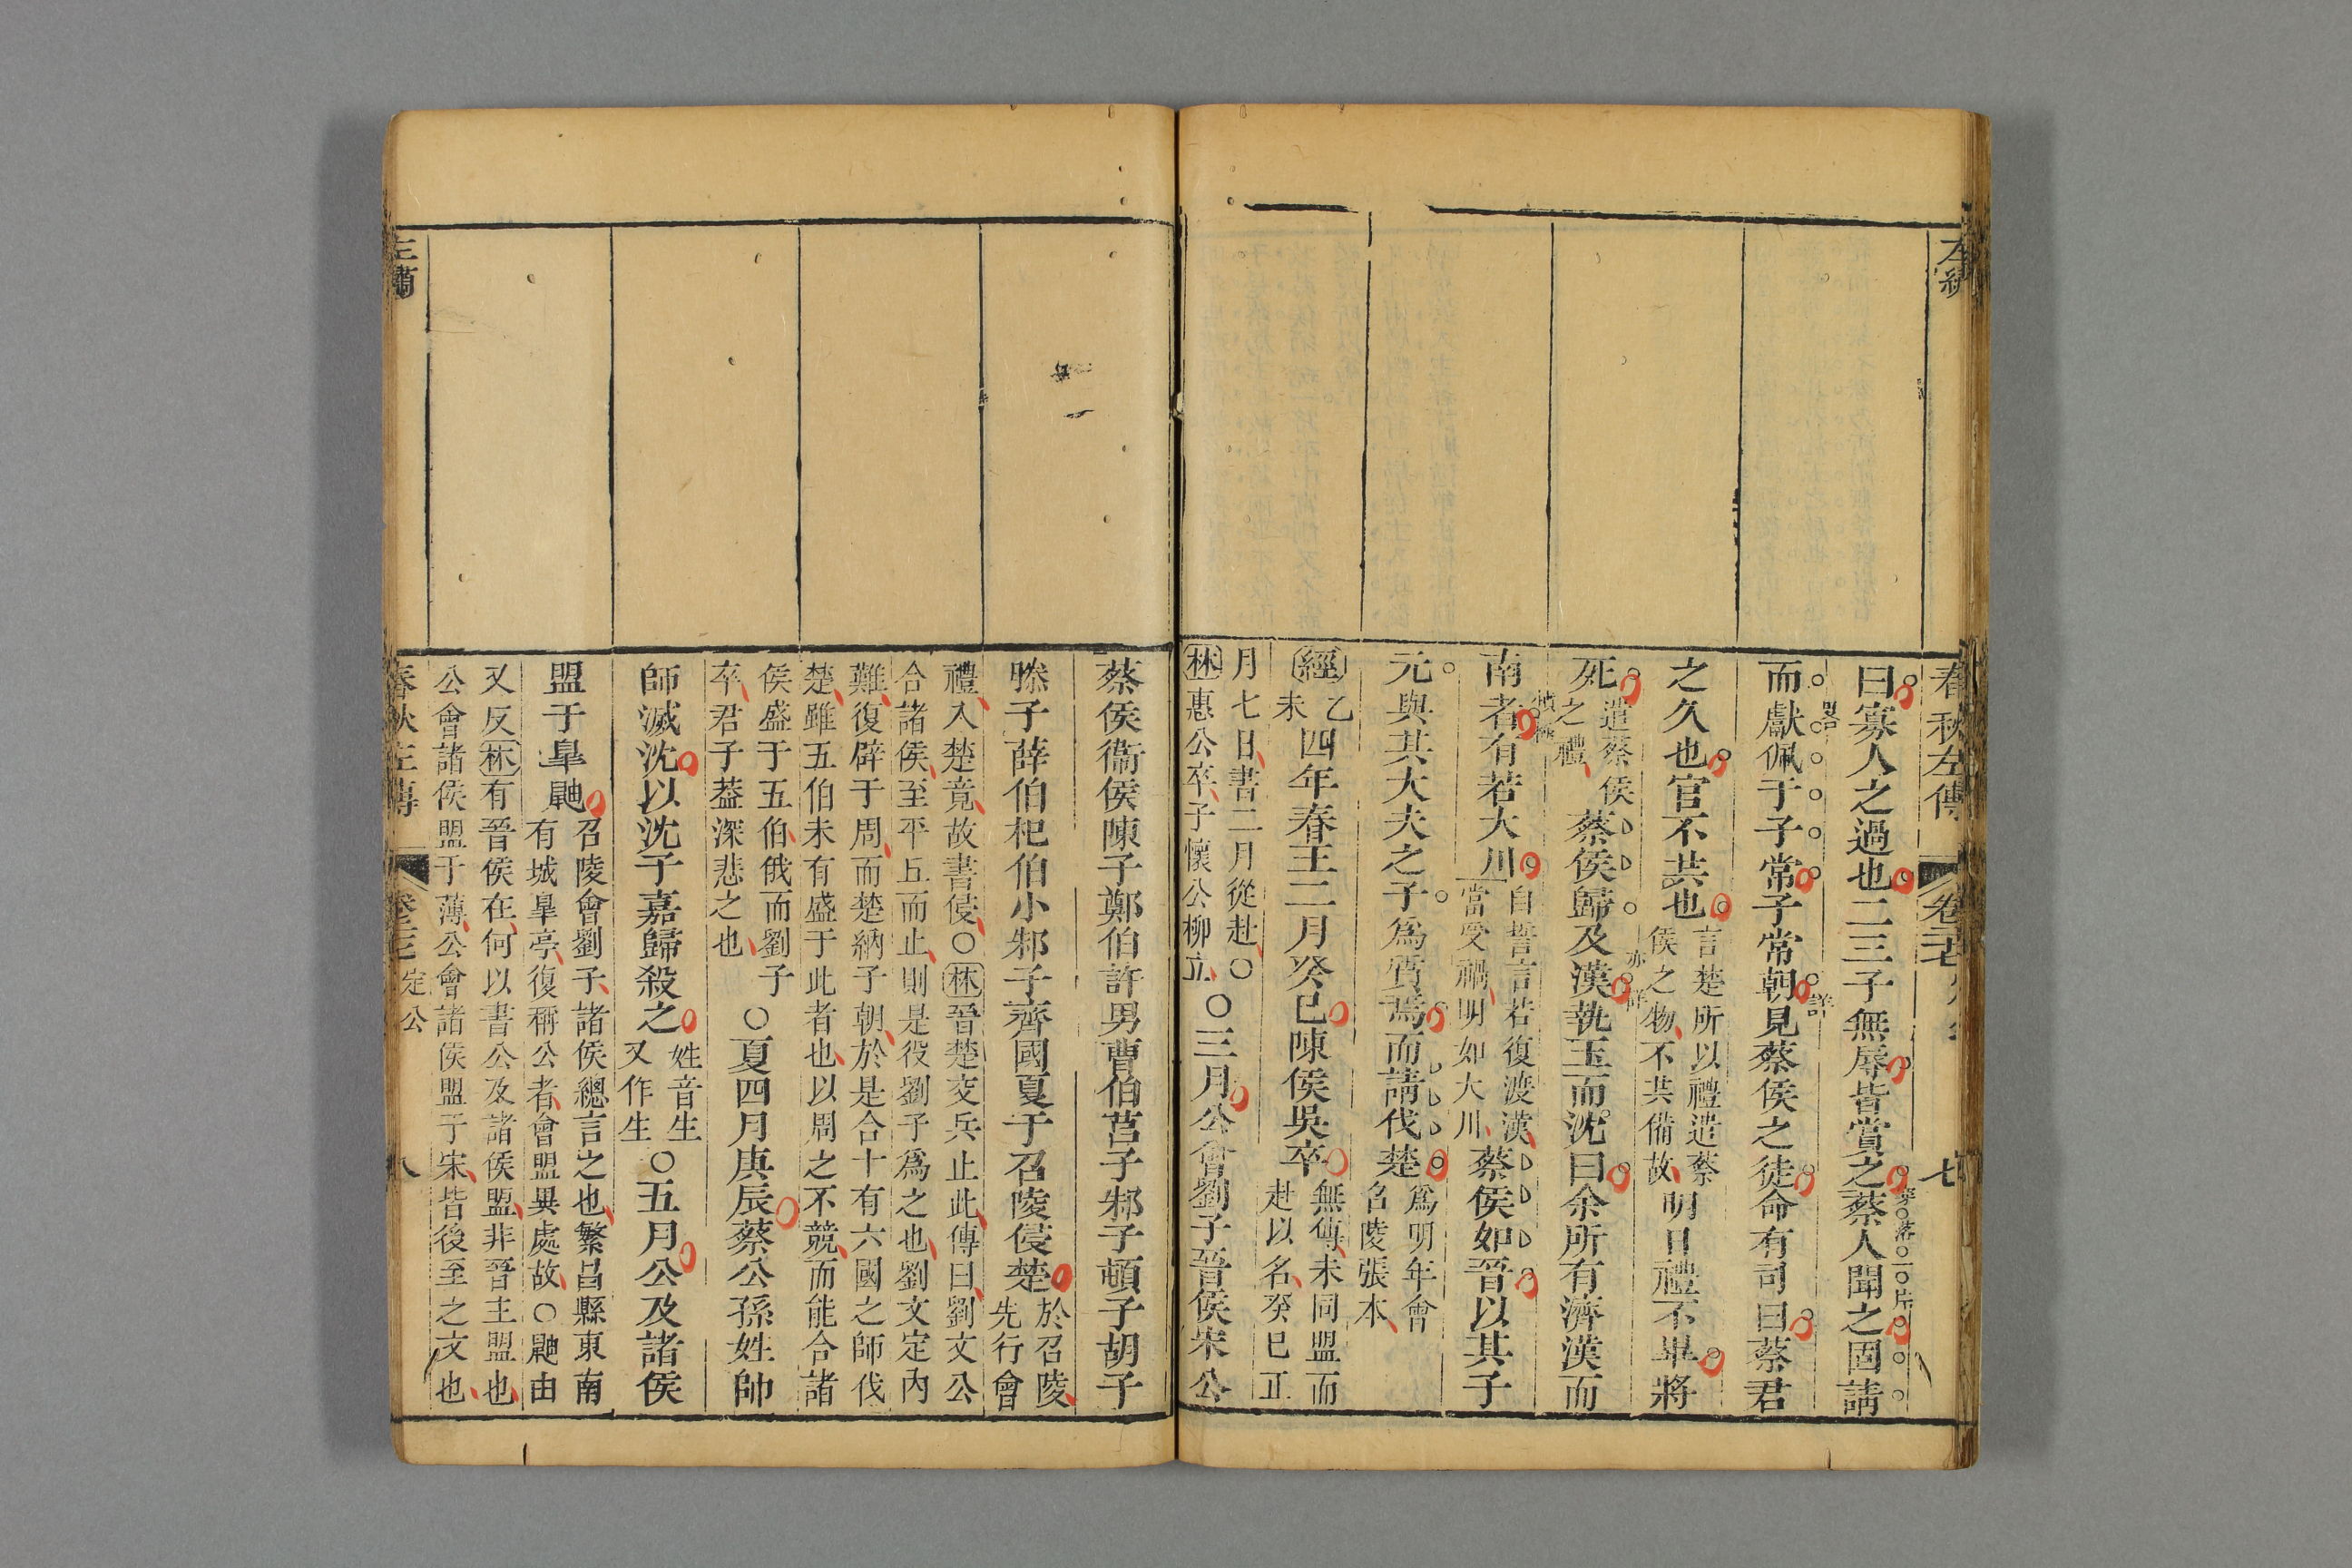 左繡
春秋左傳
七
曰寡人之過也二三子無辱皆賞之蔡人聞之固請
而獻佩于子常子常朝見蔡侯之徒命有司曰蔡君
之久也官不共也言楚所以禮遣蔡侯之物不共備故明日禮不畢將
死遣蔡侯之禮蔡侯歸及漢執玉而沈曰余所有濟漢而
南者有若大川自誓言若復渡漢當受禍明如大川蔡侯如晉以其子
元與其大夫之子為質焉而請伐楚為明年會召陵張本
經乙未四年春王二月癸巳陳侯吳卒無傳未同盟而赴以名癸巳正
月七日書二月從赴○林惠公卒子懷公柳立○三月公會劉子晉侯宋公
蔡侯衞侯陳子鄭伯許男曹伯莒子邾子頓子胡子
滕子薛伯杞伯小邾子齊國夏于召陵侵楚於召陵先行會
禮入楚竟故書侵○林晉楚交兵止此傳曰劉文公
合諸侯至平丘而止則是役劉子為之也劉文定內
難復辟于周而楚納子朝於是合十有六國之師伐
楚雖五伯未有盛于此者也以周之不競而能合諸
侯盛于五伯俄而劉子
卒君子葢深悲之也○夏四月庚辰蔡公孫姓帥
師滅沈以沈子嘉歸殺之姓音生又作生○五月公及諸侯
盟于臯鼬召陵會劉子諸侯總言之也繁昌縣東南有城臯亭復稱公者會盟異處故○鼬由
又反林有晉侯在何以書公及諸侯盟非晉主盟也
公會諸侯盟于薄公會諸侯盟于宋皆後至之文也
春秋左傳
定公
八